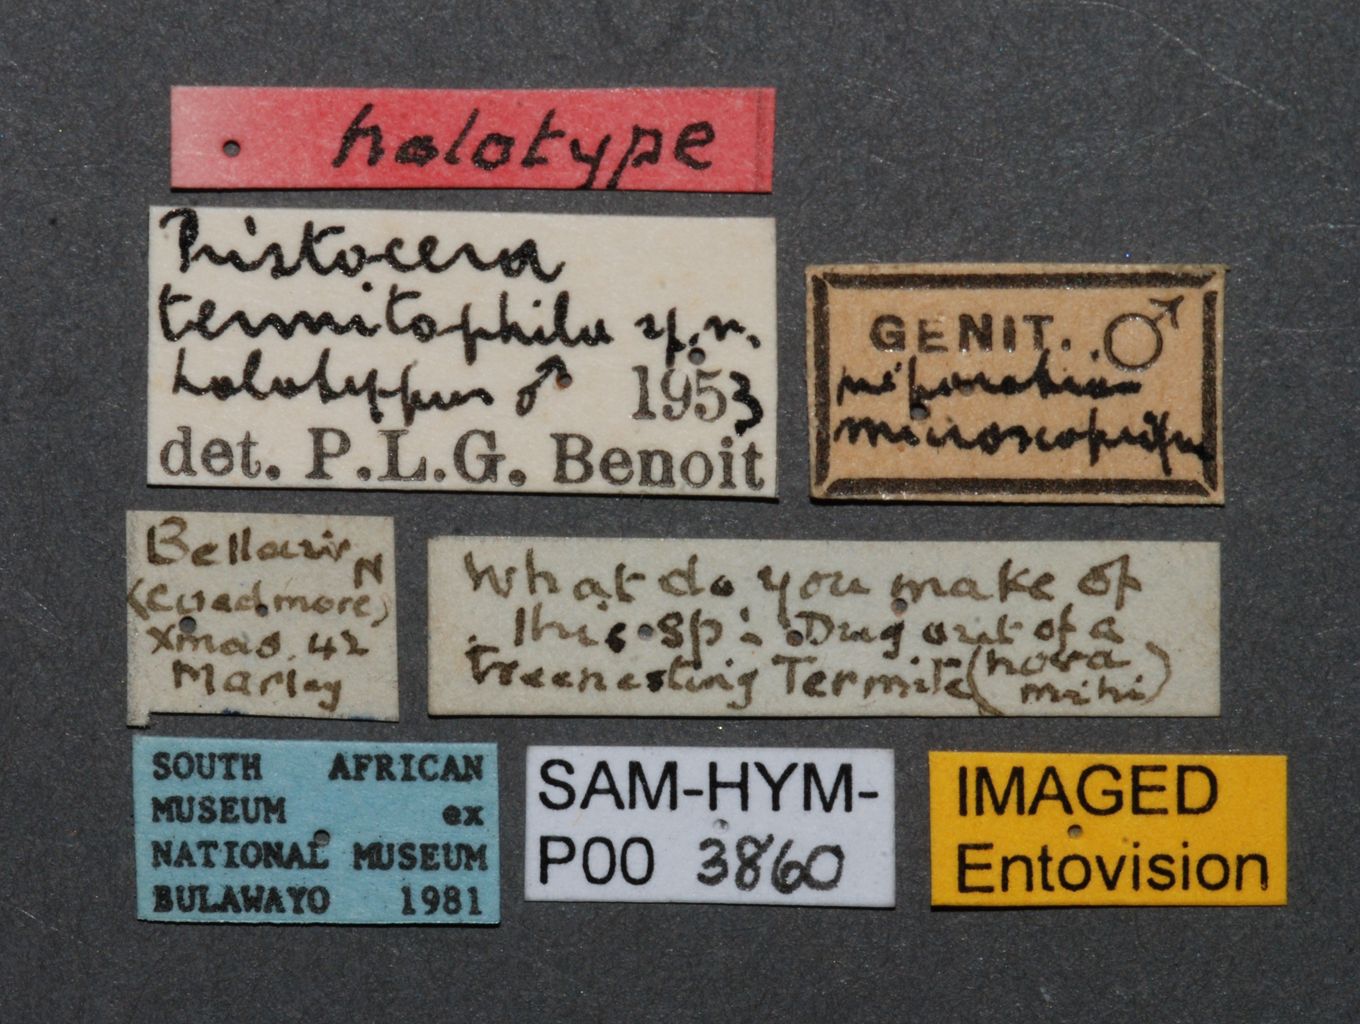 holotype
Pristocera
termitophila sp. n.
holotypus ♂ 1953
det. P.L.G. Benoit
GENIT. ♂
préparation
microscopique
Bellair
N
(Cuedmore)
Xmas 42
Marley
What do you make of
this sp: Dug out of a
treenesting Termite (nova
mihi)
SOUTH AFRICAN
MUSEUM ex
NATIONAL MUSEUM
BULAWAYO 1981
SAM-HYM-
P00 3860
IMAGED
Entovision